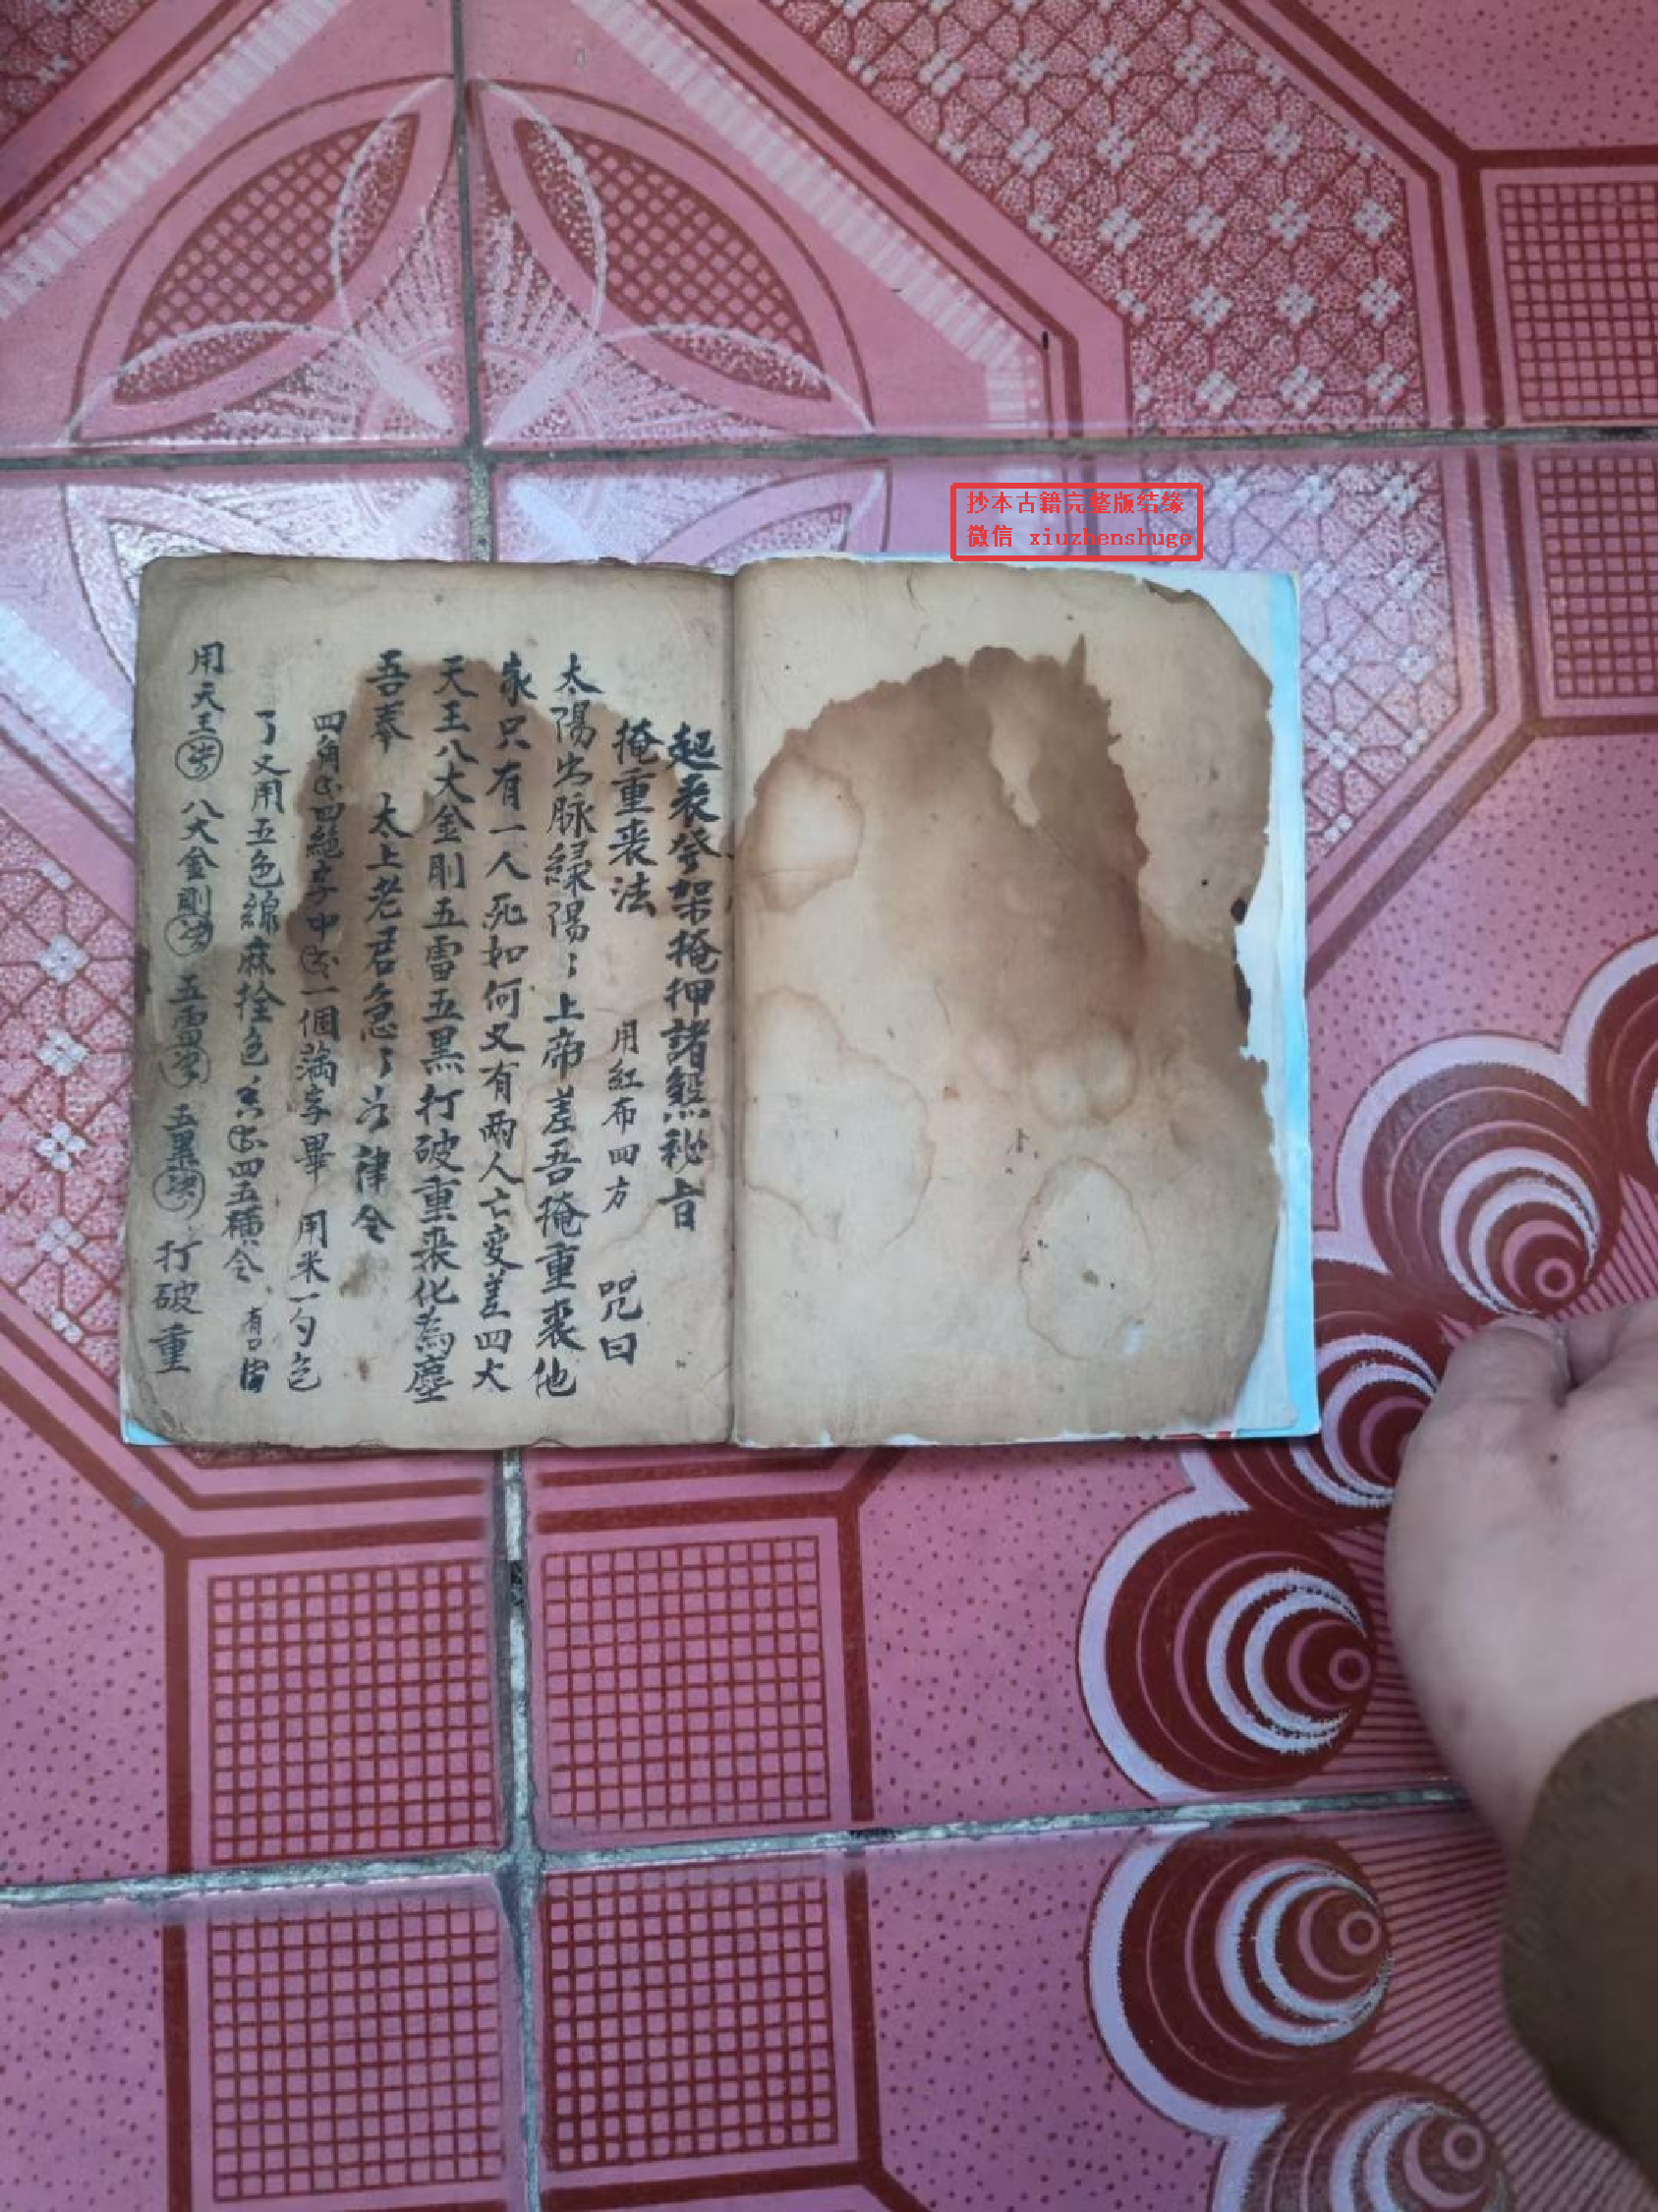 抄本古籍完整版结缘
微信 xiuzhenshuge
起丧發架掩押諸煞秘旨
掩重丧法 用紅布四方 咒曰
太陽出脉緑陽〻上帝差吾掩重丧他
家只有一人死如何又有兩人亡变差四大
天王八大金剛五雷五黑打破重丧化為塵
吾奉 太上老君急〻 律令
四角 四絕字中 一個滿字畢 用米一勺色
了又用五色線麻拴色 四五橫令
用天王 八大金剛 五雷 五黑 打破重